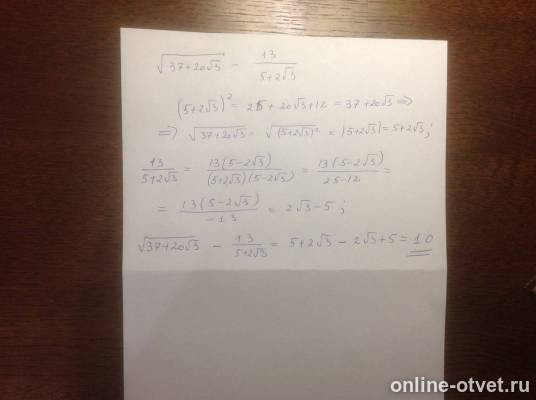 √37+20√3 − 13/(5+2√3)
(5+2√3)² = 25 + 20√3 + 12 = 37 + 20√3 ⇒
⇒ √37+20√3 = √(5+2√3)² = |5+2√3| = 5+2√3;
13/(5+2√3) = 13(5−2√3)/((5+2√3)(5−2√3)) = 13(5−2√3)/(25−12) =
= 13(5−2√3)/(−13) = 2√3−5;
√37+20√3 − 13/(5+2√3) = 5+2√3 − 2√3+5 = 10
online-otvet.ru